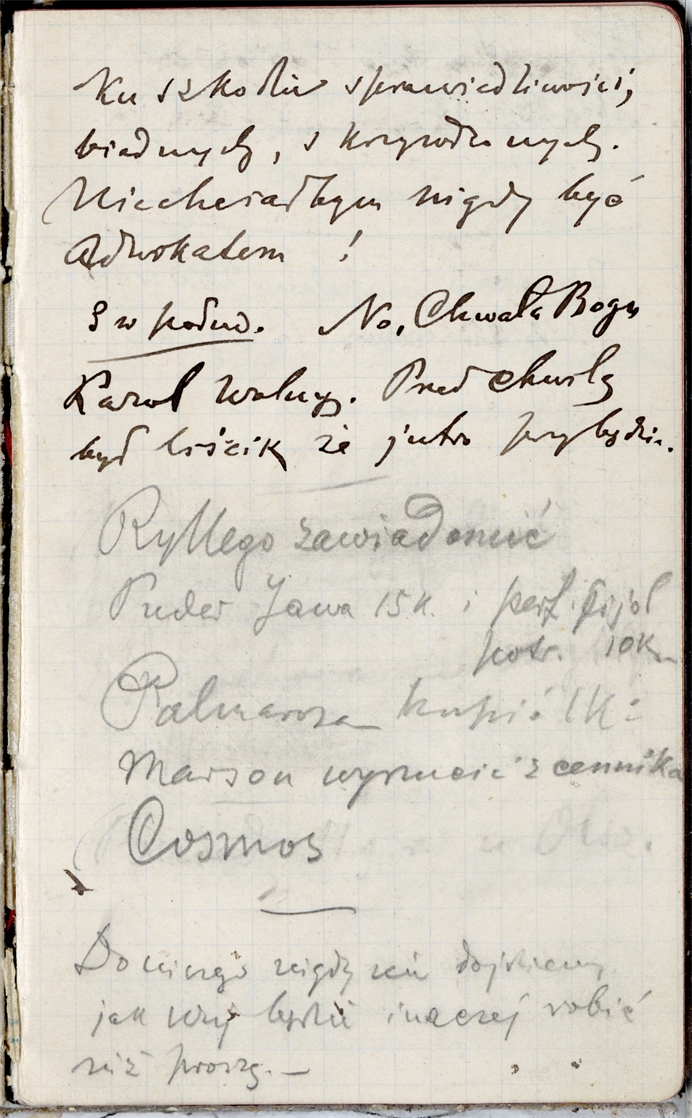 Ku szkodzie sprawiedliwości,
biednych, i skrzywdzonych.
Niechciałbym nigdy być
Adwokatem !
3 w połud. No, Chwała Bogu
Karol wolny. Przed chwilą
był liścik że jutro przybędzie.
Ryllego zawiadomić
Puder Jawa 15 K. i perf. Fijoł
potr. 10K
Palmarosa kupić 1K:
Marson wyrzucić z cennika
Cosmos
Do niczego nigdy nie dojdziemy
jak będzie inaczej robić
niż proszę. —